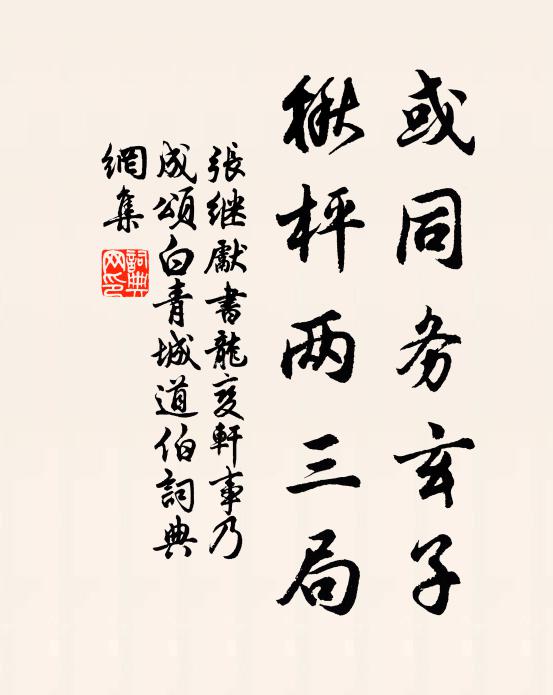 或同务玄子
楸枰两三局
張继獻書龍变軒事乃
成頌白青城道伯詞典
網集
詞典网印